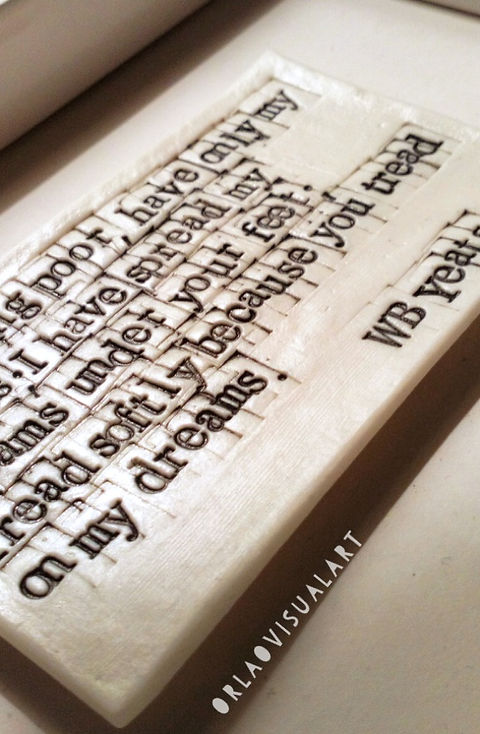 g poor, have only my
.I have spread my
ams under your feet.
read softly because you tread
on my dreams.
WB Yeats
ORLAOVISUALART